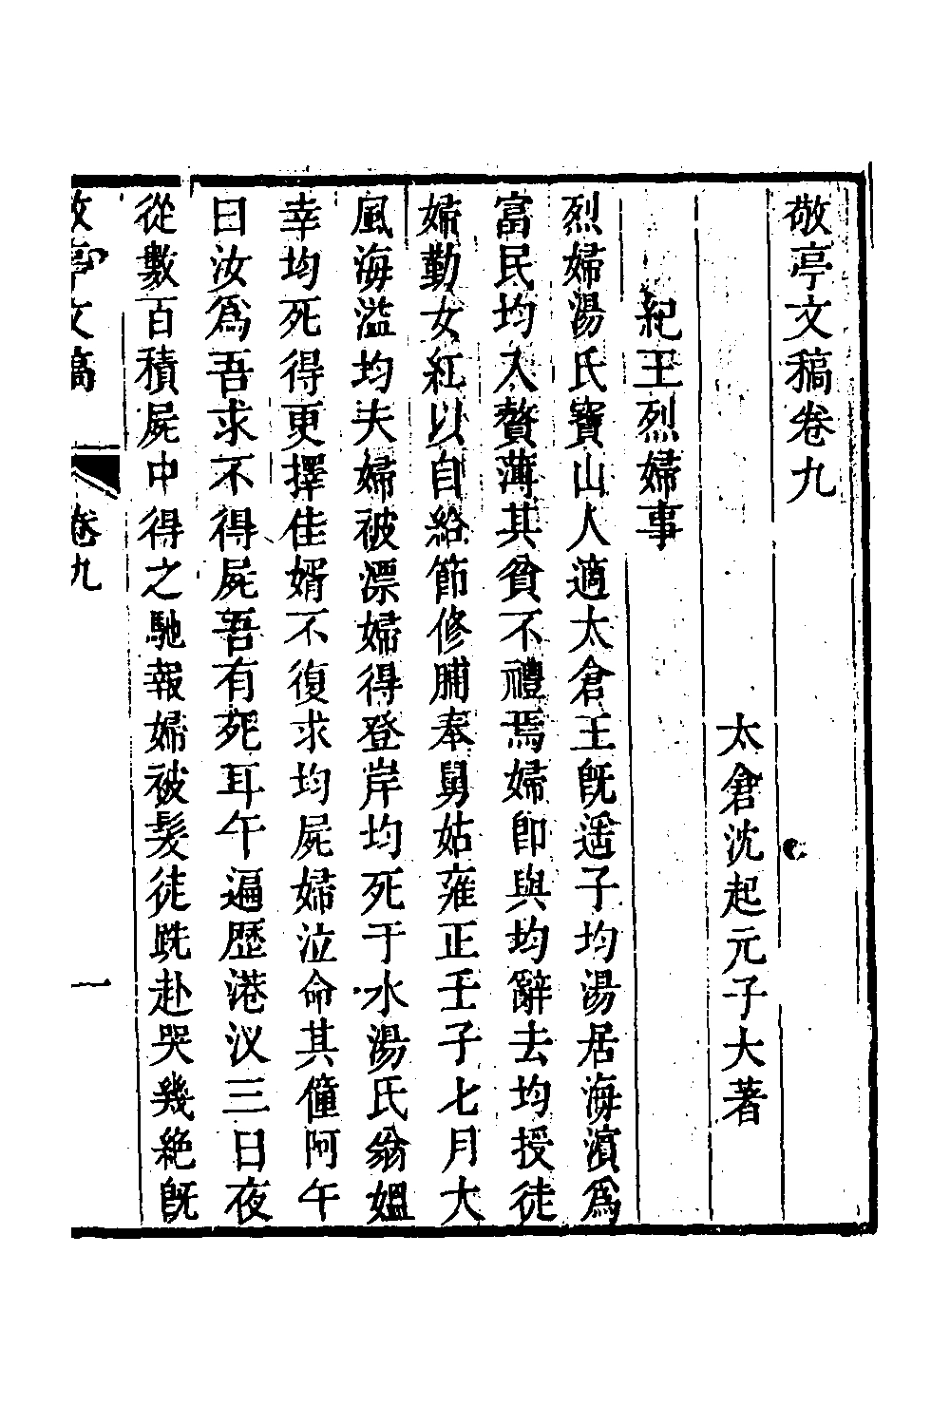 敬亭文稿卷九
太倉沈起元子大著
紀王烈婦事
烈婦湯氏寶山人適太倉王旣遥子均湯居海濵爲
富民均入贅薄其貧不禮焉婦卽與均辭去均授徒
婦勤女紅以自給節修脯奉舅姑雍正壬子七月大
風海溢均夫婦被漂婦得登岸均死于水湯氏翁媼
幸均死得更擇佳婿不復求均屍婦泣命其僮阿午
曰汝爲吾求不得屍吾有死耳午遍歷港汊三日夜
從數百積屍中得之馳報婦被髮徒跣赴哭幾絶旣
敬亭文稿 卷九 一